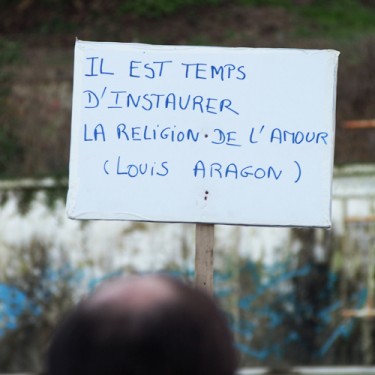 IL EST TEMPS
D'INSTAURER
LA RELIGION DE L'AMOUR
(LOUIS ARAGON)